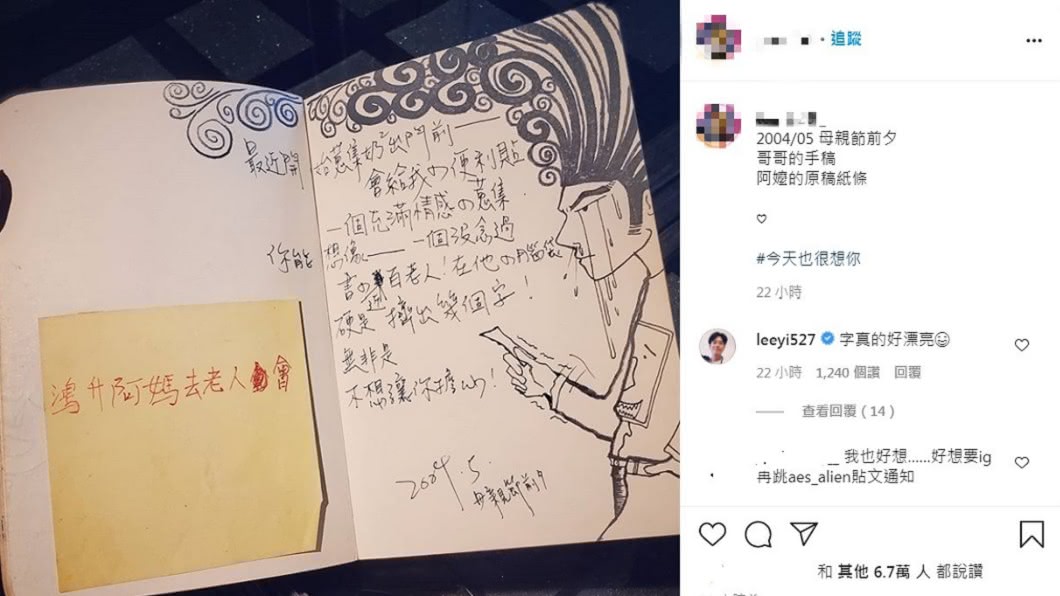 最近開始蒐集奶奶出門前——
會給我の便利貼
一個充滿情感の蒐集.
你能想像——一個沒念過
書の近百老人!在他の腦袋
硬是擠出幾個字!
無非是
不想讓你擔心!
2004.5.
母親節前夕
鴻升阿媽去老人會
追蹤
2004/05 母親節前夕
哥哥的手稿
阿嬤的原稿紙條
#今天也很想你
22 小時
leeyi527 字真的好漂亮😀
22 小時 1,240 個讚 回覆
查看回覆(14)
我也好想......好想要ig
再跳aes_alien貼文通知
和 其他 6.7萬 人 都說讚